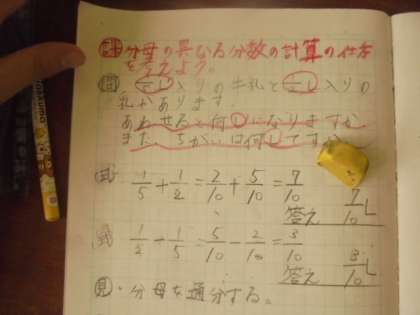 分母の異なる分数の計算の仕方
を考えよう。
問 1/5L入りの牛乳と1/2L入りの
乳があります。
あわせると何Lになりますか
また ちがいは何Lです
式 1/5+1/2=2/10+5/10=7/10
答え 7/10L
式 1/2-1/5=5/10-2/10=3/10
答え 3/10L
見・分母を通分する。